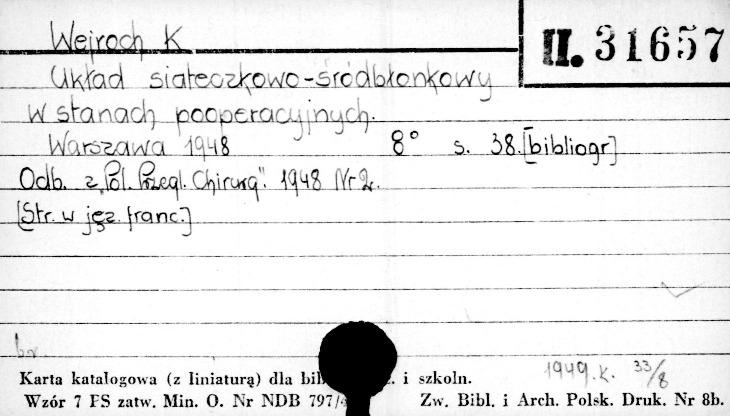 Wejroch K.
II. 31657
Układ siateczkowo-śródbłonkowy
w stanach pooperacyjnych.
Warszawa 1948 8° s. 38. [bibliogr]
Odb. z „Pol. Przegl. Chirurg". 1948 Nr 2.
[Str. w jęz. franc.]
br.
1949. K. 33/8
Karta katalogowa (z liniaturą) dla i szkoln.
Wzór 7 FS zatw. Min. O. Nr NDB 797/ Zw. Bibl. i Arch. Polsk. Druk. Nr 8b.